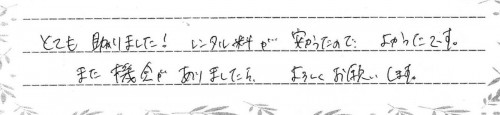 とても助りました！ レンタル料が安かったので よかったです。
また機会がありましたら、よろしくお願いします。